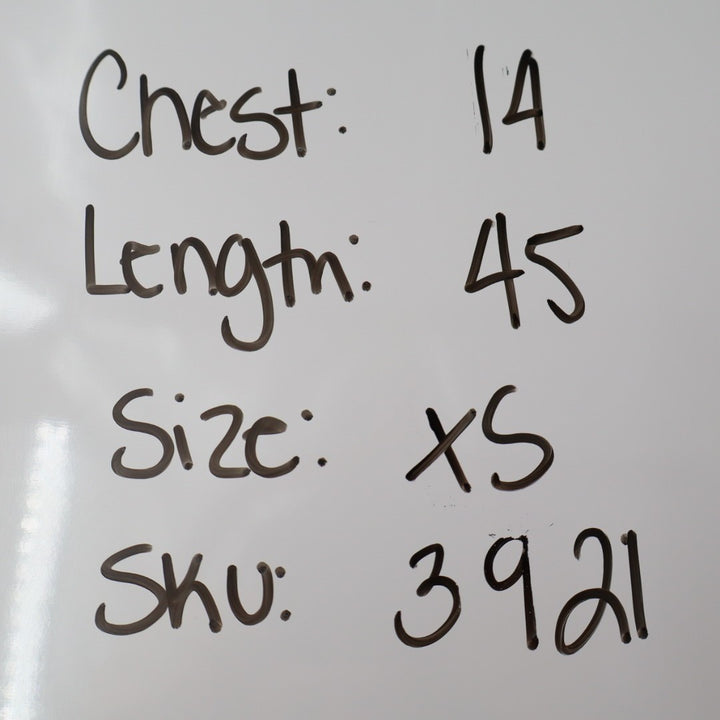 Chest: 14
Length: 45
Size: XS
SKU: 3921